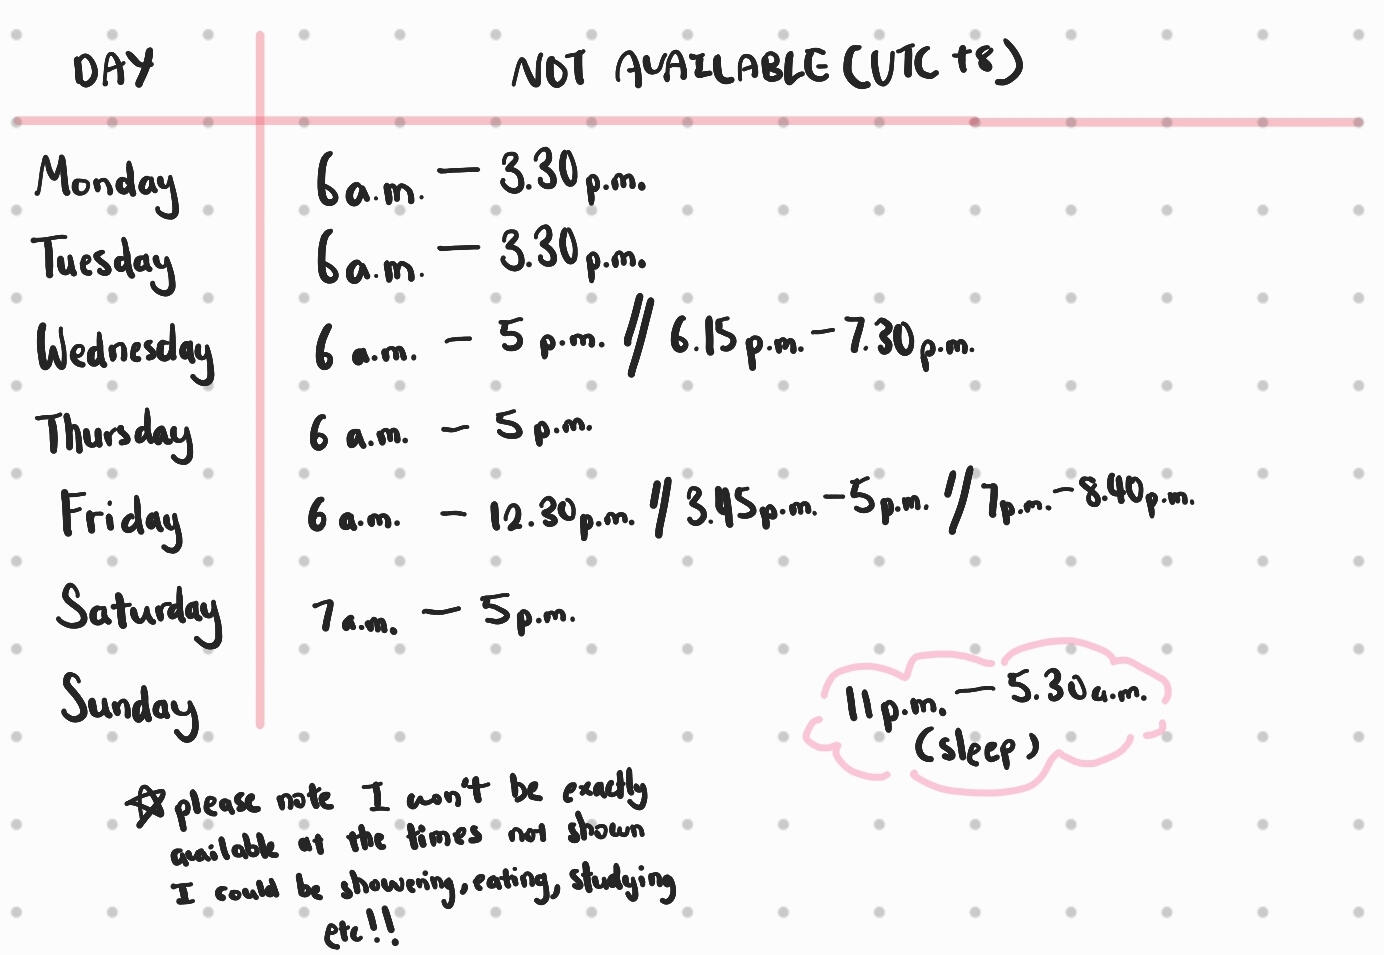 DAY NOT AVAILABLE (UTC +8)
Monday 6 a.m. — 3.30 p.m.
Tuesday 6 a.m. — 3.30 p.m.
Wednesday 6 a.m. — 5 p.m. // 6.15 p.m. — 7.30 p.m.
Thursday 6 a.m. — 5 p.m.
Friday 6 a.m. — 12.30 p.m. // 3.45 p.m. — 5 p.m. // 7 p.m. — 8.40 p.m.
Saturday 7 a.m. — 5 p.m.
Sunday
11 p.m. — 5.30 a.m.
(sleep)
☆ please note I won't be exactly
available at the times not shown
I could be showering, eating, studying
etc!!